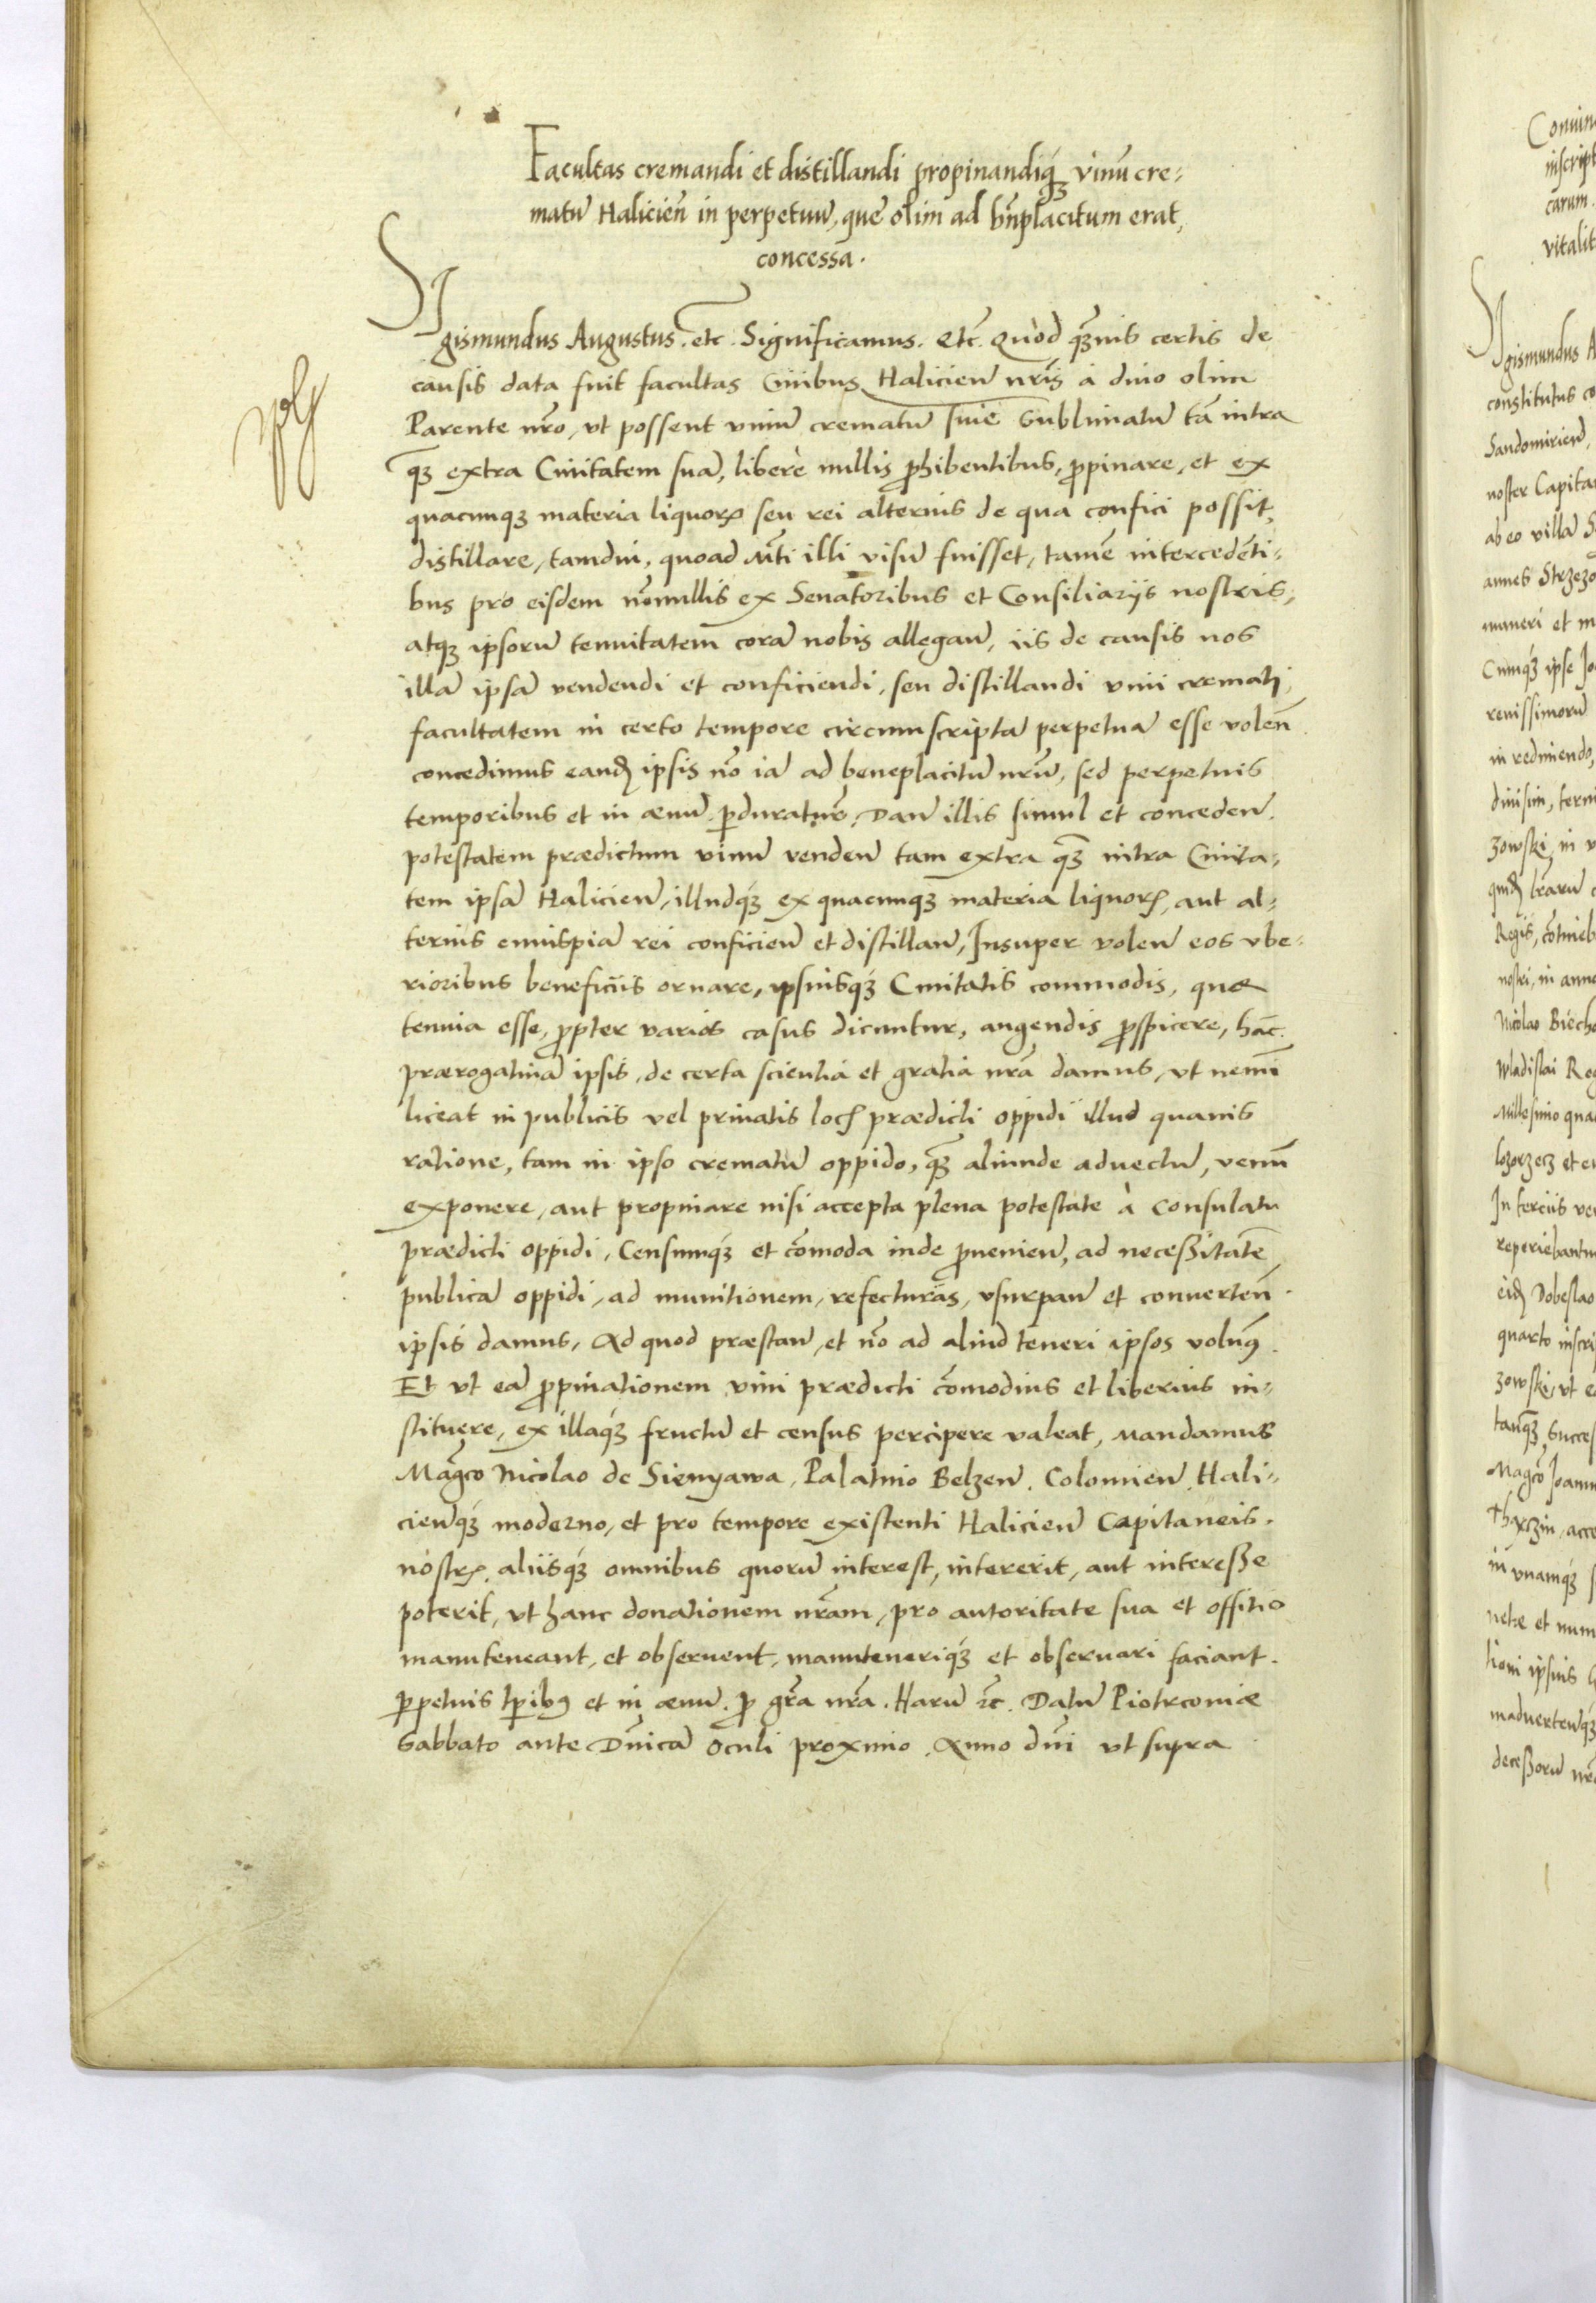 Facultas cremandi et distillandi propinandiq́ꝫ vinū cre-
matū Halicieñ in perpetuū, que olim ad bn̄placitum erat,
concessa.
SIgismundus Augustus. etc. Significamus. Etc̄. Quòd qꝫuis certis de
causis data fuit facultas Ciuibus Halicieñ nr̄is à diuo olim
Parente nr̄o, vt possent vinū crematū siue sublimatū tā intra
qꝫ extra Ciuitatem suā, liberè nullis ꝓhibentibus, ꝓpinare, et ex
quacunqꝫ materia liquorꝭ seu rei alterius de qua confici possit,
distillare, tamdiu, quoad Mt̄i illi visū fuisset, tamē intercedēti-
bus pro eisdem nōnullis ex Senatoribus et Consiliariis nostris,
atqꝫ ipsorū tenuitatem corā nobis allegañ, iis de causis nos
illā ipsā vendendi et conficiendi, seu distillandi vini cremati
facultatem in certo tempore circumscriptā perpetuā esse voleñ
concedimus eandꝫ ipsis nō iā ad beneplacitū nrūm, sed perpetuis
temporibus et in æuū ꝑduraturā. Dañ illis simul et concedeñ
potestatem prædictum vinū vendeñ tam extra qꝫ intra Ciuita-
tem ipsā Halicieñ, illudq́ꝫ ex quacunqꝫ materia liquorꝭ, aut al-
terius cuiuspiā rei conficieñ et distillañ, Insuper voleñ eos vbe-
rioribus beneficiis ornare, ipsiusq́ꝫ Ciuitatis commodis, quæ
tenuia esse, ꝓpter varios casus dicuntur, augendis ꝓspicere, hāc
prærogatiuā ipsis, de certa scientia et gratia nrā damus, vt nemi
liceat in publicis vel priuatis locꝭ prædicti oppidi illud quauis
ratione, tam in ipso crematū oppido, qꝫ aliunde aduectū, venū
exponere, aut propinare nisi accepta plena potestate à Consulatu
prædicti oppidi, Censumq́ꝫ et cōmoda inde ꝓuenieñ, ad necessitatē
publicā oppidi, ad munitionem, refecturas, vsurpañ et conuerteñ
ipsis damus, Ad quod præstañ, et nō ad aliud teneri ipsos volumꝰ.
Et vt eā ꝓpinationem vini prædicti cōmodius et liberius in-
stituere, ex illaq́ꝫ fructū et census percipere valeat, Mandamus
Mag̃co Nicolao de Sienyawa, Palatino Belzeñ, Colomieñ, Hali-
cieñq́ꝫ moderno, et pro tempore existenti Halicieñ Capitaneis.
nostrꝭ, aliisq́ꝫ omnibus quorū interest, intererit, aut interesse
poterit, vt hanc donationem nrām, pro autoritate sua et offitio
manuteneant, et obseruent, manuteneriq́ꝫ et obseruari faciant.
ꝑpetuis tꝑibꝰ et in æuū. ꝓ grā nrā. Harū etc̄. Datū Piotrconiæ
Sabbato ante Dn̄icā Oculi proximo. Anno dn̄i vt supra